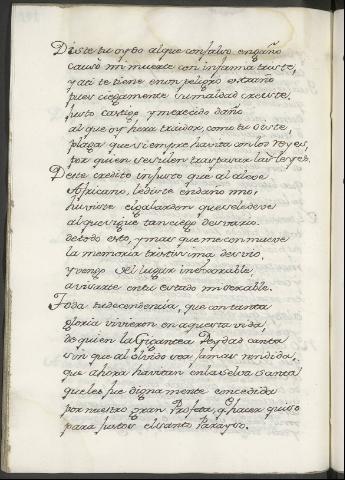 Diste tu oydo al que con falso engaño
causò mi muerte con infamia triste,
y a ti te tiene en un peligro estraño
pues ciegamente su maldad creiste.
justo castigo y merecido daño
al que oy hera traidor, como tu oiste,
plaga que siempre havita con los reyes,
por quien se suelen traspasar las leyes.
Deste credito injusto que al aleve
Africano, le diste en daño mio,
huviste el galardon que se le deve
al que sigue tan ciego desvario.
de todo esto, y mas que me conmueve
la memoria tristissima desvio,
y vengo del lugar inexorable
a visarte en tu estado miserable.
Toda tu decendencia, que con tanta
gloria vivieron en aquesta vida,
de quien la Gigantea Deydad canta
sin que al olvido sea jamas rendida,
que ahora havitan en la selva santa
que les fue dignamente concedida
por nuestro gran Profeta, q hacer quiso
para justos el santo Parayso.